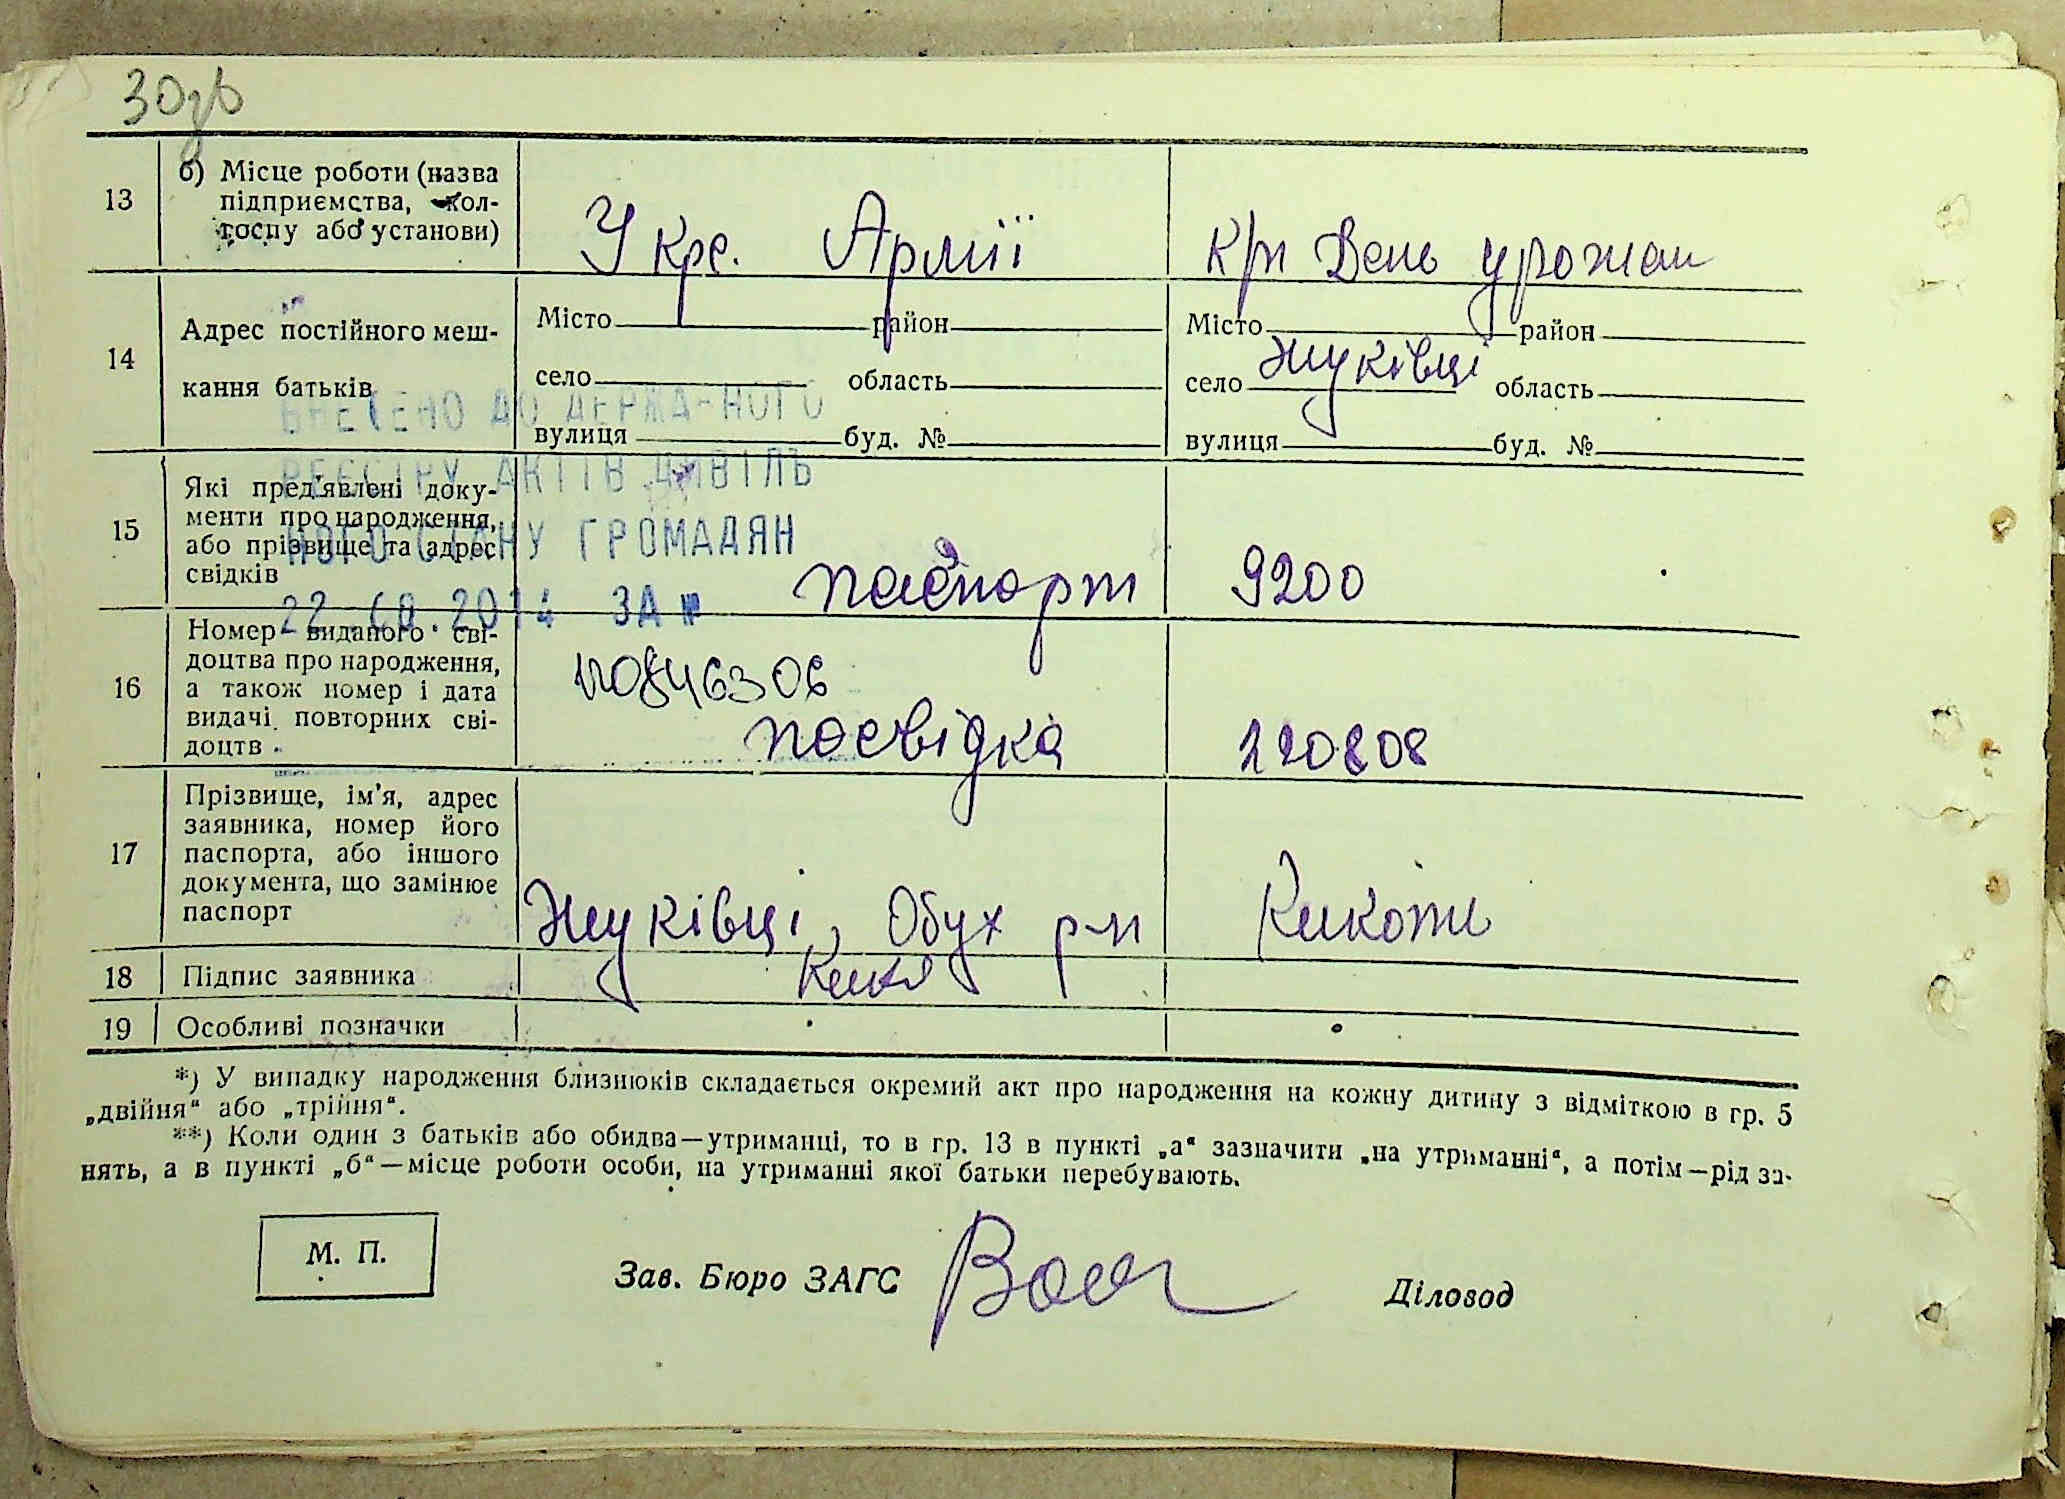 30зв
13
б) Місце роботи (назва
підприємства, кол-
госпу або установи)
У крс. Армії
к/п День урожаю
14
Адрес постійного меш-
кання батьків
Місто район
село область
вулиця буд. №
Місто район
село Жуківці область
вулиця буд. №
ВНЕСЕНО ДО ДЕРЖА-НОГО
РЕЄСТРУ АКТІВ ЦИВІЛЬ
НОГО СТАНУ ГРОМАДЯН
2014 ЗА №
15
Які пред'явлені доку-
менти про народження,
або прізвище та адрес
свідків
паспорт
9200
16
Номер виданого сві-
доцтва про народження,
а також номер і дата
видачі повторних сві-
доцтв
посвідка
220808
17
Прізвище, ім'я, адрес
заявника, номер його
паспорта, або іншого
документа, що замінює
паспорт
Жуківці, Обух р-н
18
Підпис заявника
19
Особливі позначки
*) У випадку народження близнюків складається окремий акт про народження на кожну дитину з відміткою в гр. 5
„двійня“ або „трійня“.
**) Коли один з батьків або обидва—утриманці, то в гр. 13 в пункті „а“ зазначити „на утриманні“, а потім—рід за-
нять, а в пункті „б“—місце роботи особи, на утриманні якої батьки перебувають.
М. П.
Зав. Бюро ЗАГС
Діловод